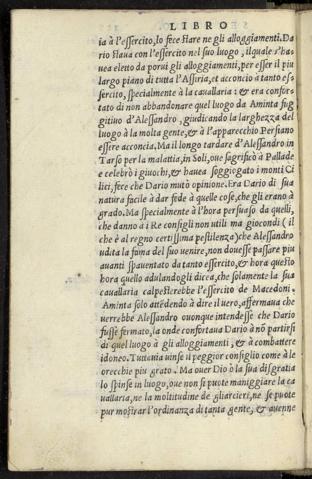 LIBRO
ia à l'essercito, lo fece stare ne gli alloggiamenti. Da
rio staua con l'essercito nel suo luogo, ilquale s'ha-
uea eletto da porui gli alloggiamenti, per esser il piu
largo piano di tutta l'Assiria, et acconcio à tanto es-
sercito, specialmente à la cauallaria: & era confor-
tato di non abbandonare quel luogo da Aminta fug
gitiuo d'Alessandro, giudicando la larghezza del
luogo à la molta gente, & à l'apparecchio Persiano
essere acconcia, Ma il longo tardare d'Alessandro in
Tarso per la malattia, in Soli, oue sagrificò à Pallade
e celebrò i giuochi, & hauea soggiogato i monti Ci
lici, fece che Dario mutò opinione. Era Dario di sua
natura facile à dar fede à quelle cose, che gli erano à
grado. Ma specialmente à l'hora persuaso da quelli,
che danno à i Re consigli non utili ma giocondi (il
che è al regno certissima pestilenza) che Alessandro
udita la fama del suo uenire, non douesse passare piu
auanti spauentato da tanto essercito, & hora questo
hora quello adulandogli dicea, che solamente la sua
cauallaria calpesterebbe l'essercito de Macedoni.
Aminta solo attēdendo à dire il uero, affermaua che
uerrebbe Alessandro ouunque intendesse che Dario
fusse fermato, la onde confortaua Dario à nō partirsi
di quel luogo à gli alloggiamenti, & à combattere
idoneo. Tuttauia uinse il peggior consiglio come à le
orecchie piu grato. Ma ouer Dio ò la sua disgratia
lo spinse in luogo, oue non si puote maniggiare la ca
uallaria, ne la moltitudine de gliarcieri, ne si puote
pur mostrar l'ordinanza di tanta gente, & auenne